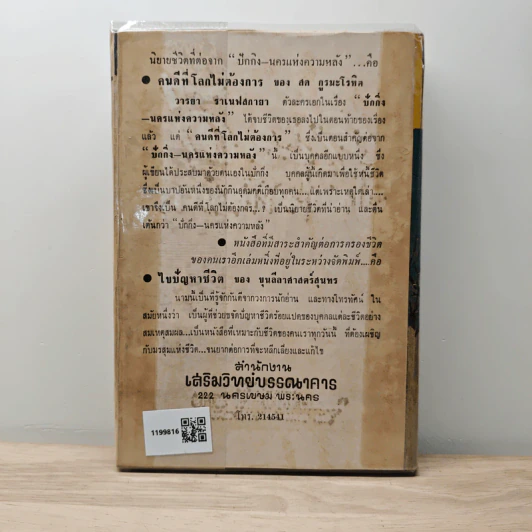 นิยายชีวิตที่ต่อจาก “ปักกิ่ง—นครแห่งความหลัง” ...คือ
● คนดีที่โลกไม่ต้องการ ของ สด กูรมะโรหิต
วารยา ราเนฟสกายา ตัวละครเอกในเรื่อง “ปักกิ่ง
—นครแห่งความหลัง” ได้จบชีวิตของเธอลงไปในตอนท้ายของเรื่อง
แล้ว แต่ “คนดีที่โลกไม่ต้องการ” ซึ่งเป็นตอนสำคัญต่อจาก
“ปักกิ่ง—นครแห่งความหลัง” นี้ เป็นบุคคลอีกแบบหนึ่ง ซึ่ง
ผู้เขียนได้ประสบมาด้วยตนเองในปักกิ่ง บุคคลผู้นี้เกิดมาเพื่อใช้หนี้ชีวิต
ซึ่งเป็นบาปอันหนึ่งของ ทุกคน....แต่เพราะเหตุใดเล่า....
เขาจึงเป็น คนดีที่โลกไม่ต้องการ...? เป็นนิยายชีวิตที่น่าอ่าน และตื่น
เต้นกว่า “ปักกิ่ง—นครแห่งความหลัง”
● หนังสือที่มีสาระสำคัญต่อการครองชีวิต
ของคนเราอีกเล่มหนึ่งที่อยู่ในระหว่างจัดพิมพ์....คือ
● ไขปัญหาชีวิต ของ ขุนลีลาศาสตร์สุนทร
นามนี้เป็นที่รู้จักกันดีจากวงการนักอ่าน และทางโทรทัศน์ ใน
สมัยหนึ่งว่า เป็นผู้ที่ช่วยขจัดปัญหาชีวิตร้อยแปดของบุคคลแต่ละชีวิตอย่าง
สมเหตุสมผล...เป็นหนังสือที่เหมาะกับชีวิตของคนเราทุกวันนี้ ที่ต้องเผชิญ
กับมรสุมแห่งชีวิต...จนยากต่อการที่จะหลีกเลี่ยงและแก้ไข
สำนักงาน
เสริมวิทย์บรรณาคาร
222 นครเขษม พระนคร
โทร. 214541
1199816